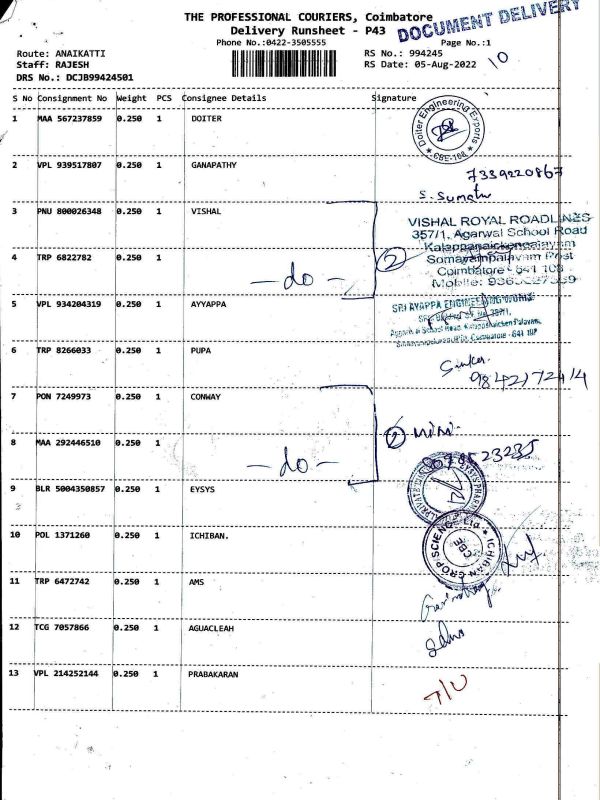 THE PROFESSIONAL COURIERS, Coimbatore
Delivery Runsheet - P43
DOCUMENT DELIVERY
Phone No.:0422-3505555
Page No.:1
Route: ANAIKATTI
RS No.: 994245
Staff: RAJESH
RS Date: 05-Aug-2022
10
DRS No.: DCJB99424501
S No Consignment No Weight PCS Consignee Details Signature
1 MAA 567237859 0.250 1 DOITER
Doiter Engineering Exports
CBE-108
2 VPL 939517807 0.250 1 GANAPATHY
7339220867
S. Sumathi
3 PNU 800026348 0.250 1 VISHAL
VISHAL ROYAL ROADLINES
357/1, Agarwal School Road
Kalappanaickenpalayam
4 TRP 6822782 0.250 1
- do -
2
Somayampalayam Post
Coimbatore - 641 108
Mobile:
5 VPL 934204319 0.250 1 AYYAPPA
SRI AYAPPA ENGINEERING WORKS
Coimbatore - 641 108
6 TRP 8266033 0.250 1 PUPA
9842172414
7 PON 7249973 0.250 1 CONWAY
2
8 MAA 292446510 0.250 1
- do -
9 BLR 5004350857 0.250 1 EYSYS
EYSYS PHARMA
10 POL 1371260 0.250 1 ICHIBAN.
ICHIBAN CROP SCIENCE Ltd
CBE
11 TRP 6472742 0.250 1 AMS
12 TCG 7057866 0.250 1 AGUACLEAH
13 VPL 214252144 0.250 1 PRABAKARAN